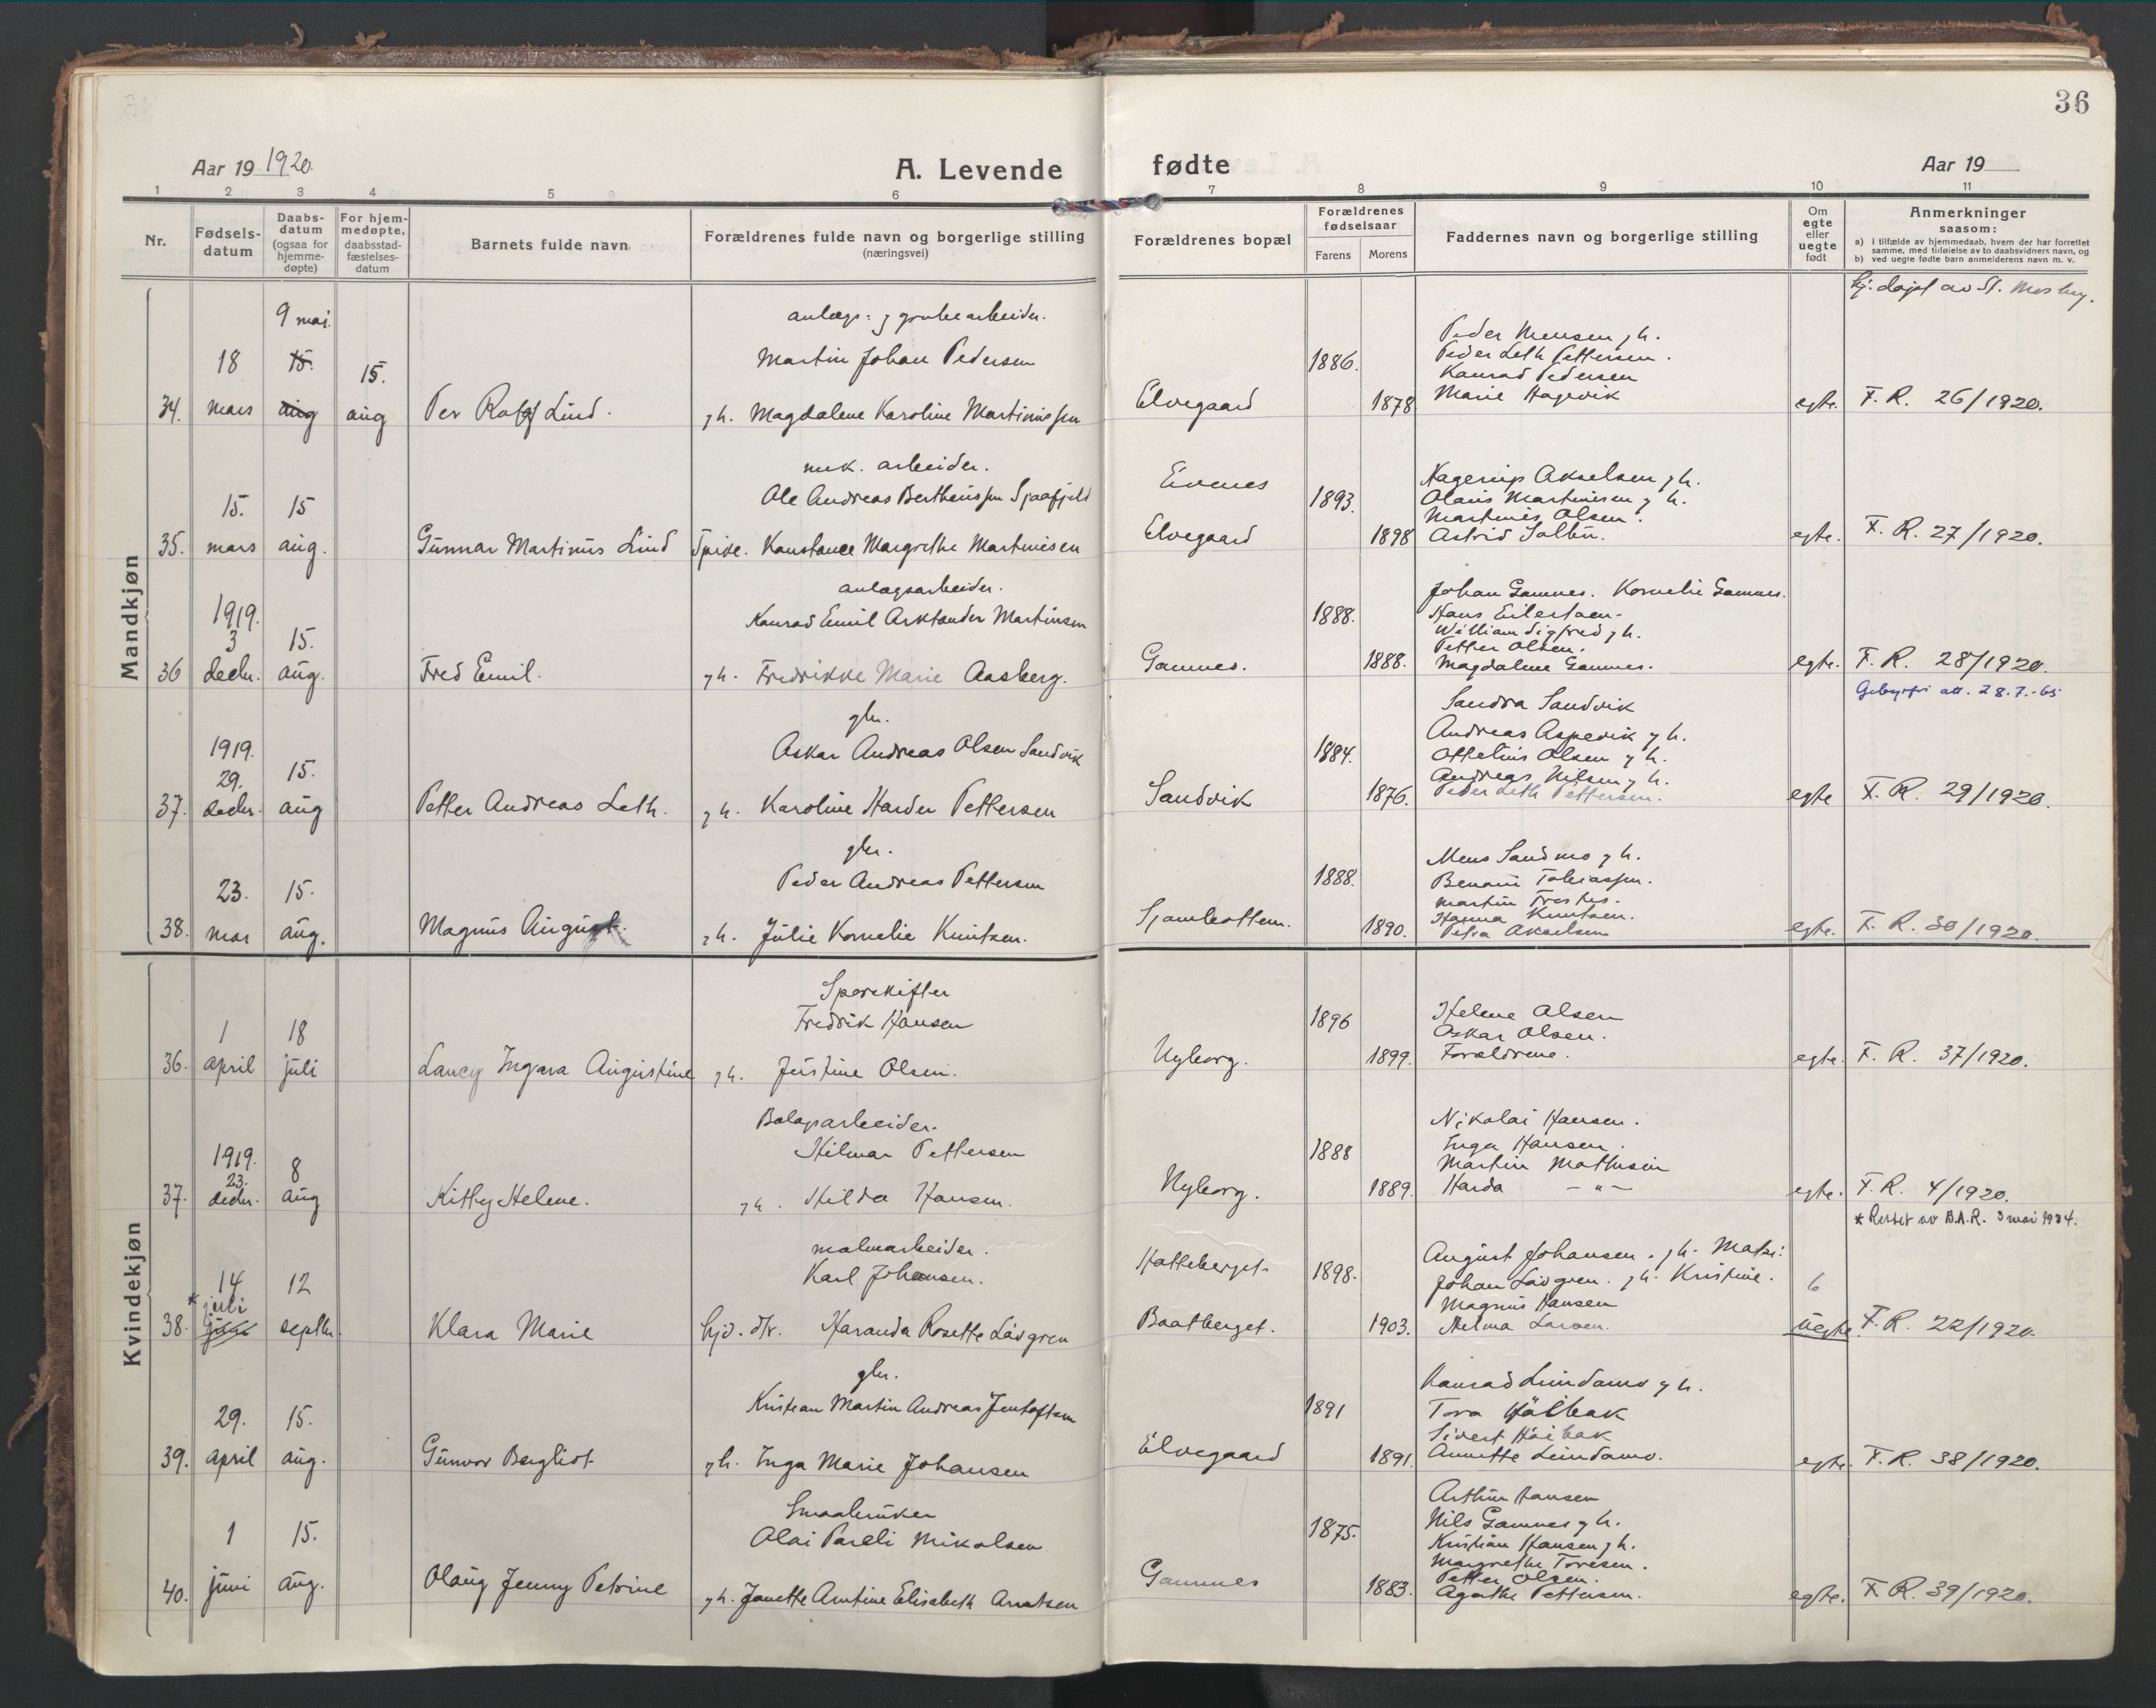 36
Aar 19 1920.
A. Levende fødte
Aar 19
1 2 3 4 5 6 7 8 9 10 11
Nr.
Fødsels-
datum
Daabs-
datum
(ogsaa for
hjemme-
døpte)
For hjem-
medøpte,
daabsstad-
fæstelses-
datum
Barnets fulde navn
Forældrenes fulde navn og borgerlige stilling
(næringsvei)
Forældrenes bopæl
Forældrenes
fødselsaar
Farens
Morens
Faddernes navn og borgerlige stilling
Om
egte
eller
uegte
født
Anmerkninger
saasom:
a) i tilfælde av hjemmedaab, hvem der har forrettet
samme, med tilføielse av to daabsvidners navn, og
b) ved uegte fødte barn anmelderens navn m. v.
Mandkjøn
34. 18 mars
9 mai
15. aug
15. aug
Per Rolf Lind.
anlægs: g grubearbeider.
Martin Johan Pedersen
g h. Magdalene Karoline Martinussen
Elvegaard
1886.
1878
Peder Mensen g h.
Peder Leth Pettersen.
Konrad Pedersen
Marie Hagevik
egte.
hj. døpt av St.
F. R. 26/1920.
35. 15. mars
15 aug.
Gunnar Martinus Lind
mek. arbeider.
Ole Andreas Bertheussen Sjaafjeld
Konstance Margrethe Martinisen
Evenes
Elvegaard
1893.
1898
Hagerup Akselsen g h.
Olaus Martinisen g h.
Martinus Olsen.
Astrid
egte.
F. R. 27/1920.
36
1919.
3 decbr.
15. aug.
Fred Emil.
anlægsarbeider.
Konrad Emil Arktander Martinsen
g h. Fredrikke Marie Aasberg.
Gamnes.
1888.
1888.
Johan Gamnes. Kornelie Gamnes.
Hans Eilertsen.
William Sigfred g h.
Petter Olsen.
Magdalene Gamnes.
egte.
F. R. 28/1920.
Gebyrfri att. 28.7.-65
37.
1919.
29. decbr.
15. aug
Petter Andreas Leth.
gbr.
Oskar Andreas Olsen Sandvik
g h. Karoline Harder Pettersen
Sandvik
1884.
1876.
Sandra Sandvik
Andreas Aspevik g h.
Ottelius Olsen g h.
Andreas Nilsen g h.
Peder Leth Pettersen.
egte
F. R. 29/1920.
38. 23. mar
15. aug.
Magnus August.
gbr.
Peder Andreas Pettersen
g h. Julie Kornelie Knutsen.
Sjombotten.
1888.
1890.
Mens Sandmo g h.
Benoni Tobiassen.
Martin
Hanna Knutsen.
Petra Akselsen
egte.
F. R. 30/1920.
Kvindekjøn
36. 1 april
18 juli
Laucy Ingara Augustine
Sporskifter
Fredrik Hansen
g h. Justine Olsen.
Nyborg.
1896
1899.
Helene Olsen
Oskar Olsen.
Forældrene.
egte.
F. R. 37/1920.
37.
1919.
23. decbr.
8 aug
Kitty Helene.
Bolagsarbeider.
Hilmar Pettersen
g h. Hilda Hansen.
Nyborg.
1888
1889.
Nikolai Hansen.
Inga Hansen.
Martin Mathisin
Harda — „ —
egte.
F. R. 4/1920.
* Rettet av B.A.R. 3 mai 1934.
38. 14
* juli
12 septbr.
Klara Marie
malmarbeider.
Karl Johansen.
hjv. dtr. Haranda Rosette Lövgren
Hatteberget
Baatberget.
1898.
1903.
August Johansen. g h.
Johan Lövgren. g h. Kristine.
Magnus Hansen
Helma Larsen.
6
uegte.
F. R. 22/1920.
39. 29. april
15. aug.
Gunvor Bergliot
gbr.
Kristian Martin Andreas Jentoftsen
g h. Inga Marie Johansen
Elvegaard
1891
1891.
Konrad Leindamo g h.
Tora Höibak
Sivert Höibak
Annette Leindamo.
egte.
F. R. 38/1920.
40. 1 juni
15. aug.
Olaug Jenny Petrine
Smaabruker
Olai Pareli Mikalsen
g h. Janette Arntine Elisabeth Arntsen
Gamnes
1875.
1883.
Arthur Hansen
Nils Gamnes g h.
Kristian Hansen g h.
Margrethe Toresen.
Petter Olsen.
Agathe Pettersen.
egte.
F. R. 39/1920.